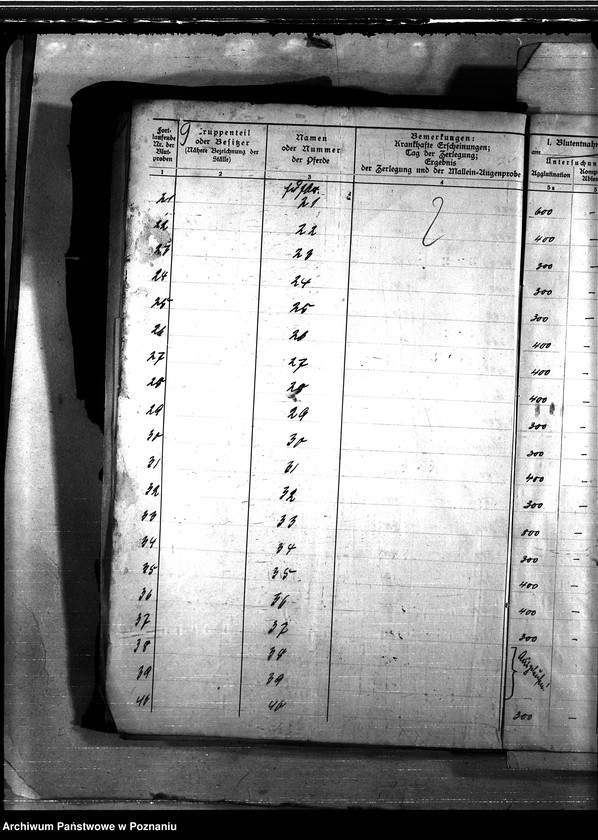 Fort-
laufende
Nr. der
Blut-
proben
Truppenteil
oder Besitzer
(Nähere Bezeichnung der
Ställe)
Namen
oder Nummer
der Pferde
Bemerkungen:
Krankhafte Erscheinungen;
Tag der Zerlegung;
Ergebnis
der Zerlegung und der Mallein-Augenprobe
I. Blutentnahm
am
Untersuchun
Agglutination
Komp
Ablen
1 2 3 4 5a 5
21 21 600 –
22 22 400 –
23 23 300 –
24 24 300 –
25 25 300 –
26 26 400 –
27 27 400 –
28 28 400 –
29 29 300 –
30 30 300 –
31 31 400 –
32 32 300 –
33 33 800 –
34 34 300 –
35 35 400 –
36 36 400 –
37 37 300 –
38 38
39 39
40 40 300 –
Archiwum Państwowe w Poznaniu